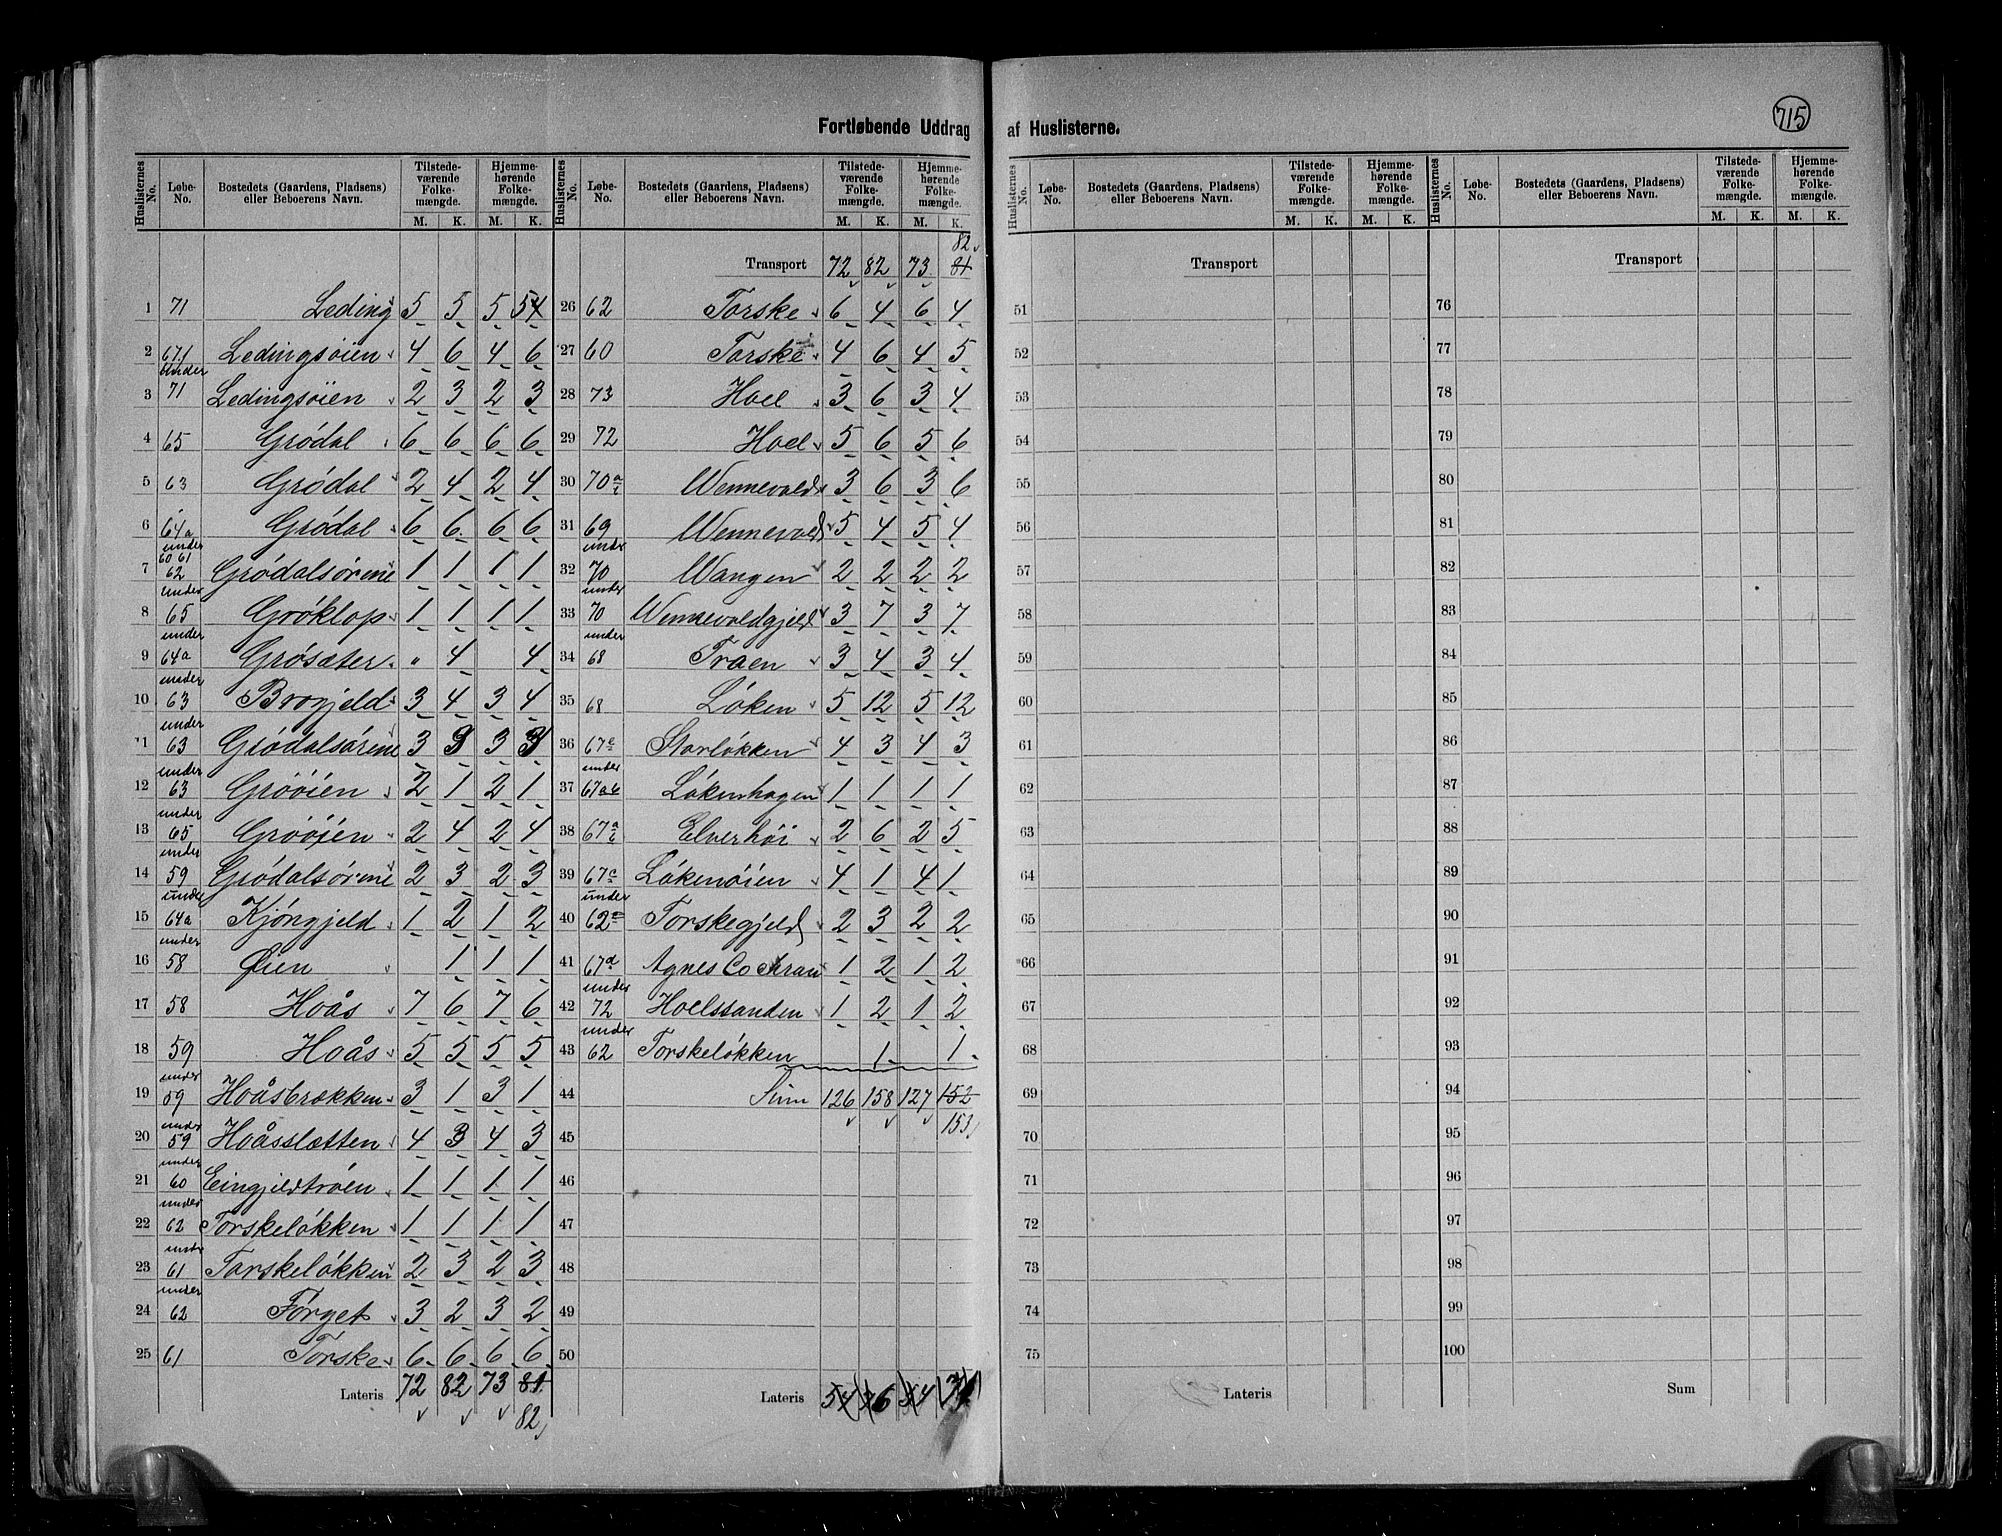 Fortløbende Uddrag af Huslisterne.
715
Huslisternes No. | Løbe-No. | Bostedets (Gaardens, Pladsens) eller Beboerens Navn. | Tilstedeværende Folkemængde. M. K. | Hjemmehørende Folkemængde. M. K.
1 71 Leding 5 5 5 5
2 67.1 Ledingsøien 4 6 4 6
3 under 71 Ledingsøien 2 3 2 3
4 65 Grødal 6 6 6 6
5 63 Grødal 2 4 2 4
6 64a Grødal 6 6 6 6
7 under 60 61 62 Grødalsørene 1 1 1 1
8 under 65 Grøklop 1 1 1 1
9 under 64a Grøsæter " 4 4
10 under 63 Brogjeld 3 4 3 4
11 under 63 Grødalsørene 3 3 3 3
12 under 63 Grøøien 2 1 2 1
13 under 65 Grøøien 2 4 2 4
14 under 59 Grødalsørene 2 3 2 3
15 under 64a Kjøngjeld 1 2 1 2
16 under 58 Øien 1 1 1
17 58 Hoås 7 6 7 6
18 59 Hoås 5 5 5 5
19 under 59 Hoåsbrækken 3 1 3 1
20 under 59 Hoåsslætten 4 3 4 3
21 under 60 Eingjeldtrøen 1 1 1 1
22 under 62 Torskeløkken 1 1 1 1
23 under 61 Torskeløkken 2 3 2 3
24 under 62 Førget 3 2 3 2
25 61 Torske 6 6 6 6
Lateris 72 82 73 81
82
Huslisternes No. | Løbe-No. | Bostedets (Gaardens, Pladsens) eller Beboerens Navn. | Tilstedeværende Folkemængde. M. K. | Hjemmehørende Folkemængde. M. K.
82
Transport 72 82 73 81
26 62 Torske 6 4 6 4
27 60 Torske 4 6 4 5
28 73 Hoel 3 6 3 4
29 72 Hoel 5 6 5 6
30 70a Wennevold 3 6 3 6
31 69 Wennevold 5 4 5 4
32 under 70 Wangen 2 2 2 2
33 under 70 Wennevoldgjeld 3 7 3 7
34 under 68 Traen 3 4 3 4
35 68 Løken 5 12 5 12
36 67e Storløkken 4 3 4 3
37 under 67a Løkenhagen 1 1 1 1
38 67a Elverhøi 2 6 2 5
39 67c Løkenøien 4 1 4 1
40 under 62 Torskegjeld 2 3 2 2
41 67d Agnes Cochran 1 2 1 2
42 under 72 Hoelssanden 1 2 1 2
43 under 62 Torskeløkken 1 1
44 Sum 126 158 127 152
45 153
46
47
48
49
50
Lateris 54 76 54 71
Huslisternes No. | Løbe-No. | Bostedets (Gaardens, Pladsens) eller Beboerens Navn. | Tilstedeværende Folkemængde. M. K. | Hjemmehørende Folkemængde. M. K.
Transport
51
52
53
54
55
56
57
58
59
60
61
62
63
64
65
66
67
68
69
70
71
72
73
74
75
Lateris
Huslisternes No. | Løbe-No. | Bostedets (Gaardens, Pladsens) eller Beboerens Navn. | Tilstedeværende Folkemængde. M. K. | Hjemmehørende Folkemængde. M. K.
Transport
76
77
78
79
80
81
82
83
84
85
86
87
88
89
90
91
92
93
94
95
96
97
98
99
100
Sum